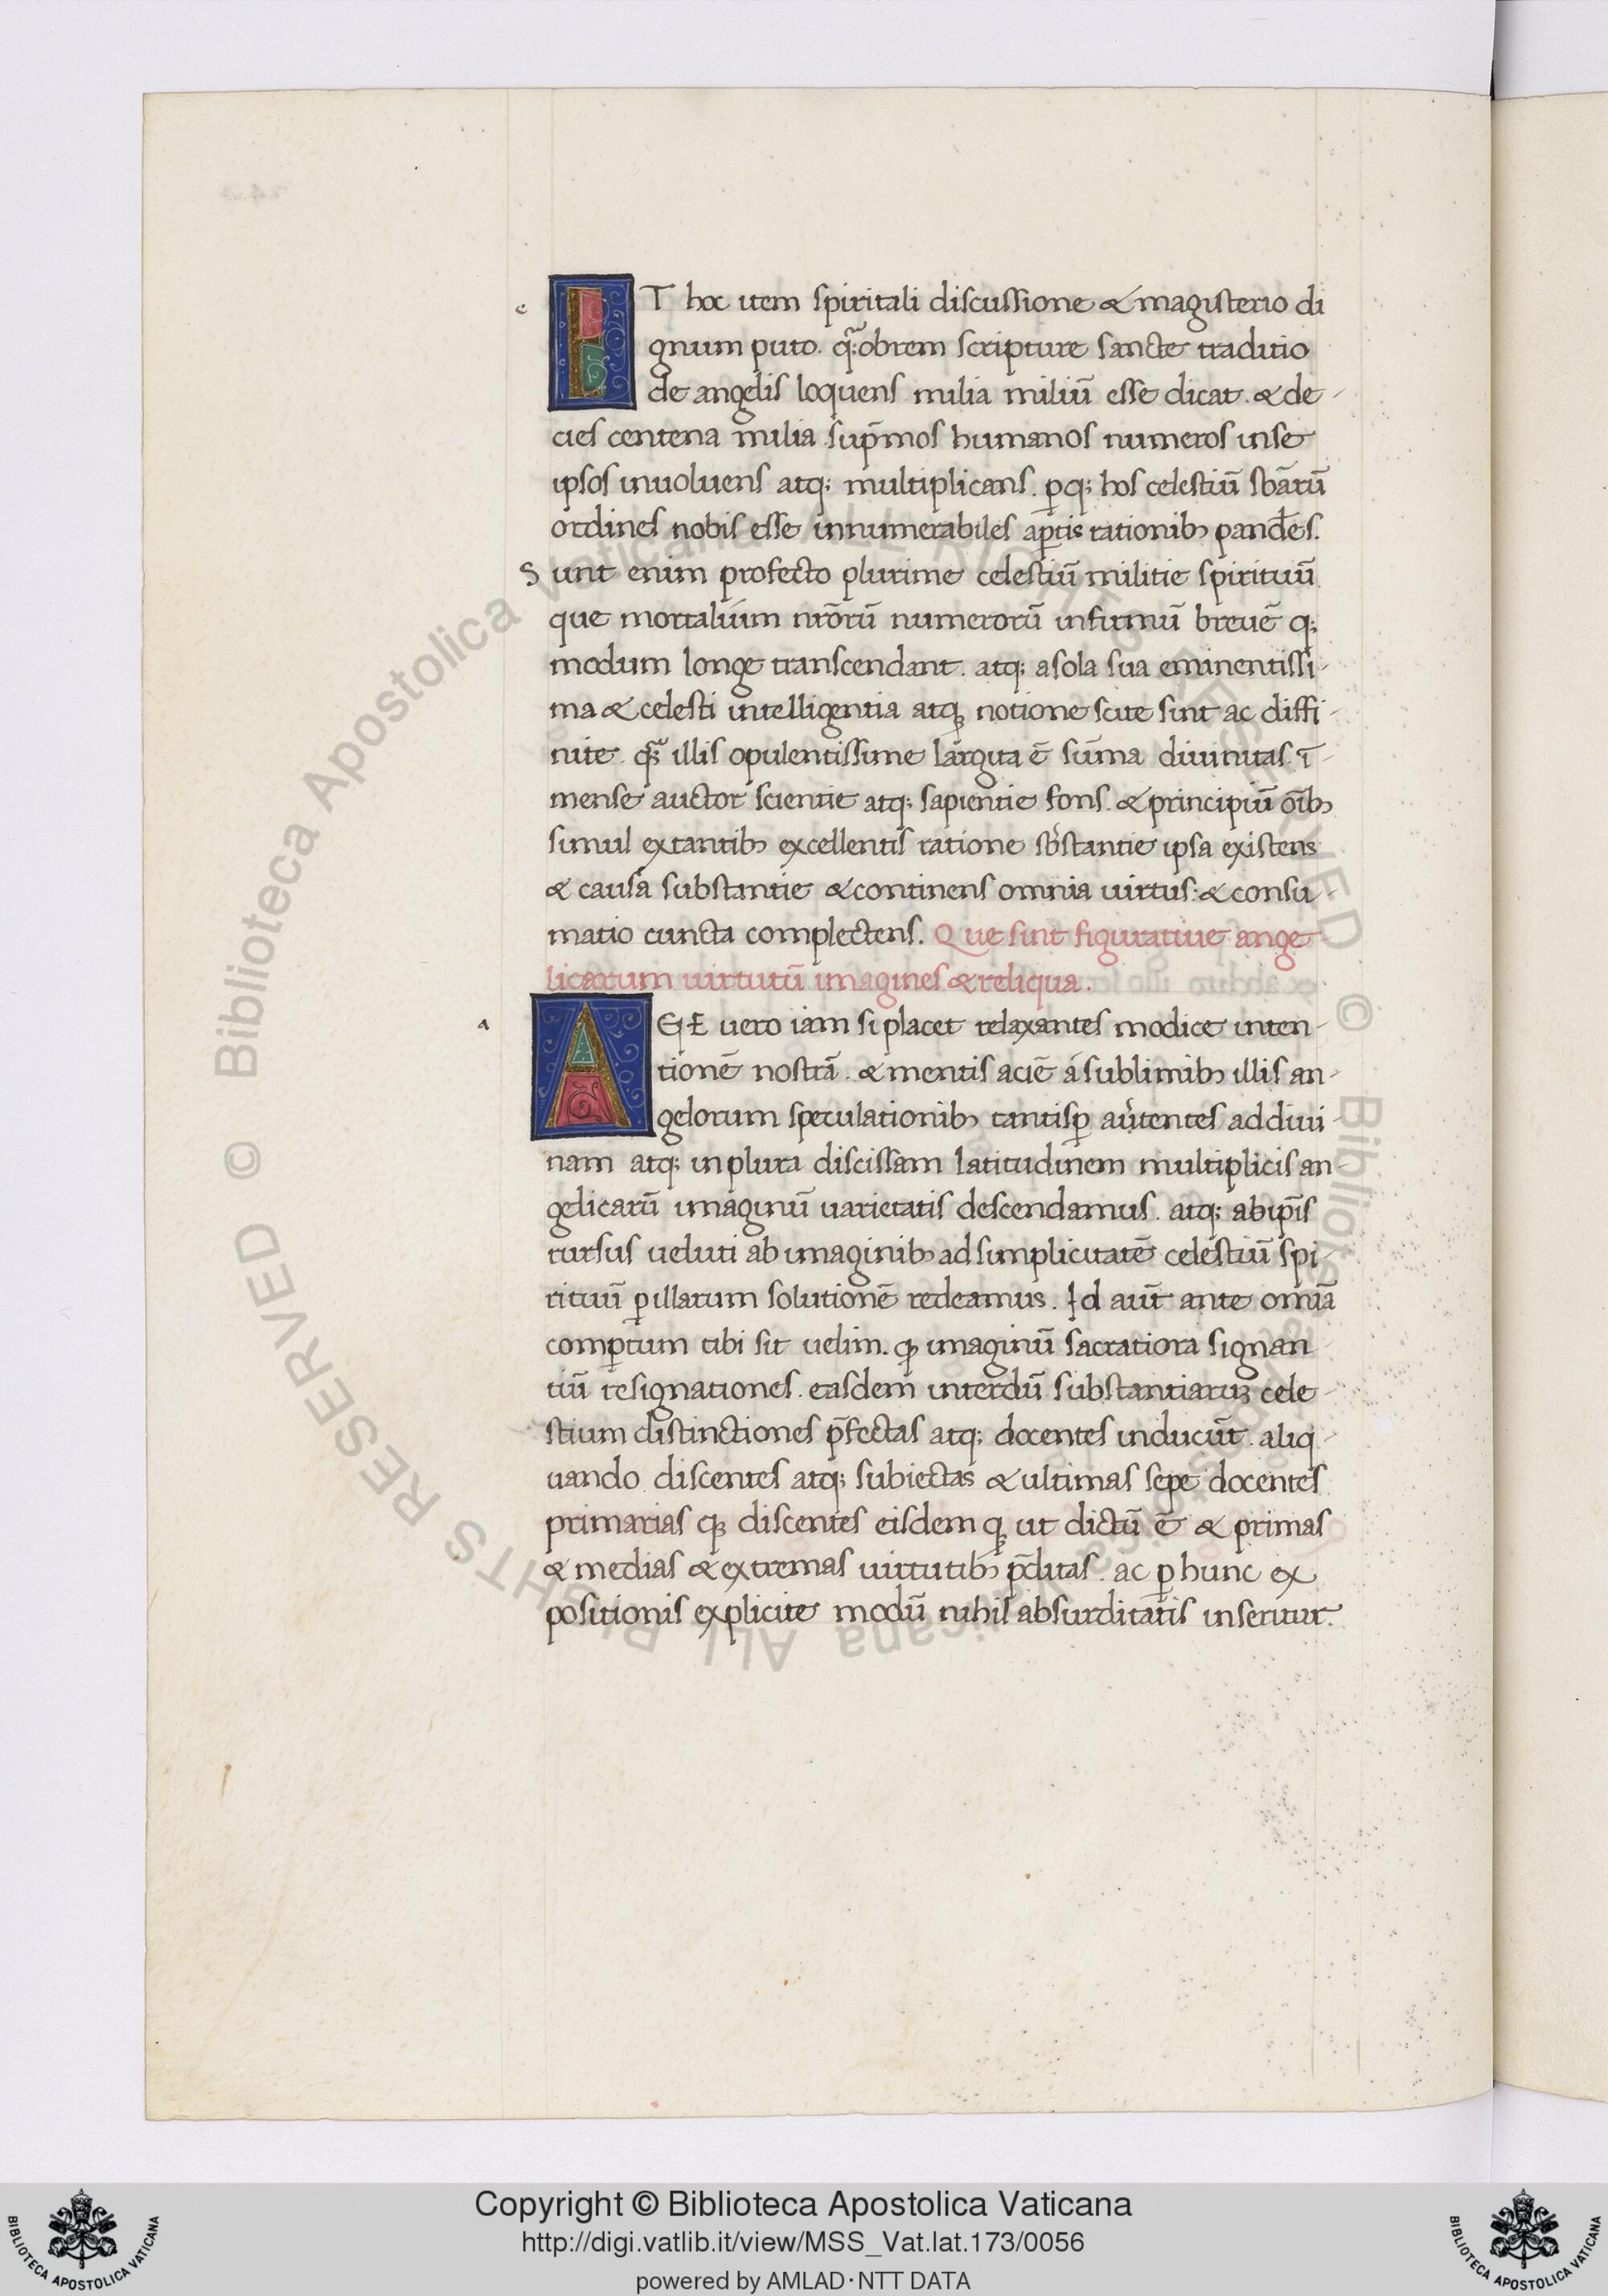 e
ET hoc item spiritali discussione & magisterio di
gnum puto. q̃obrem scripture sancte traditio
de angelis loquens milia miliũ esse dicat. & de-
cies centena milia sup̃mos humanos numeros inse
ipsos inuoluens atq; multiplicans. ꝑq; hos celestiũ sb̃arũ
ordines nobis esse innumerabiles aꝑtis rationibꝫ pandẽs.
Sunt enim profecto plurime celestiũ militie spirituũ
que mortalium nr̃orũ numerorũ infirmũ breuẽ q;
modum longe transcendant. atq; asola sua eminentissi-
ma & celesti intelligentia atqꝫ notione scite sint ac diffi-
nite. q̃ illis opulentissime largita ẽ sũma diuinitas. ĩ-
mense auctor scientie atq; sapientie fons. & principiũ oĩbꝫ
simul extantibꝫ excellentis ratione sb̾stantie ipsa existens
& causa substantie & continens omnia uirtus: & consu-
matio cuncta complectens. Que sint figuratiue ange
licarum uirtutũ imagines & reliqua.
a
AGE uero iam si placet relaxantes modice inten-
tionẽ nostrã. & mentis aciẽ á sublimibꝫ illis an-
gelorum speculationibꝫ tantisꝑ au̾tentes ad diui-
nam atq; inplura discissam latitudinem multiplicis an-
gelicarũ imaginũ uarietatis descendamus. atq; abip̃is
rursus ueluti ab imaginibꝫ ad simplicitatẽ celestiũ spi-
rituũ ꝑ illarum solutionẽ redeamus. Id aũt ante omnia
comꝑtum tibi sit uelim. ꝙ imaginũ sacratiora signan
tiũ resignationes. easdem interdũ substantiaruꝫ cele-
stium distinctiones p̃fectas atq; docentes inducũt. aliq-
uando discentes atq; subiectas & ultimas sepe docentes
primarias qꝫ discentes eisdem qꝫ ut dictũ ẽ & primas
& medias & extremas uirtutibꝫ p̃ditas. ac ꝑ hunc ex
positionis explicite modũ nihil absurditatis inseritur.
Copyright © Biblioteca Apostolica Vaticana
http://digi.vatlib.it/view/MSS_Vat.lat.173/0056
powered by AMLAD·NTT DATA